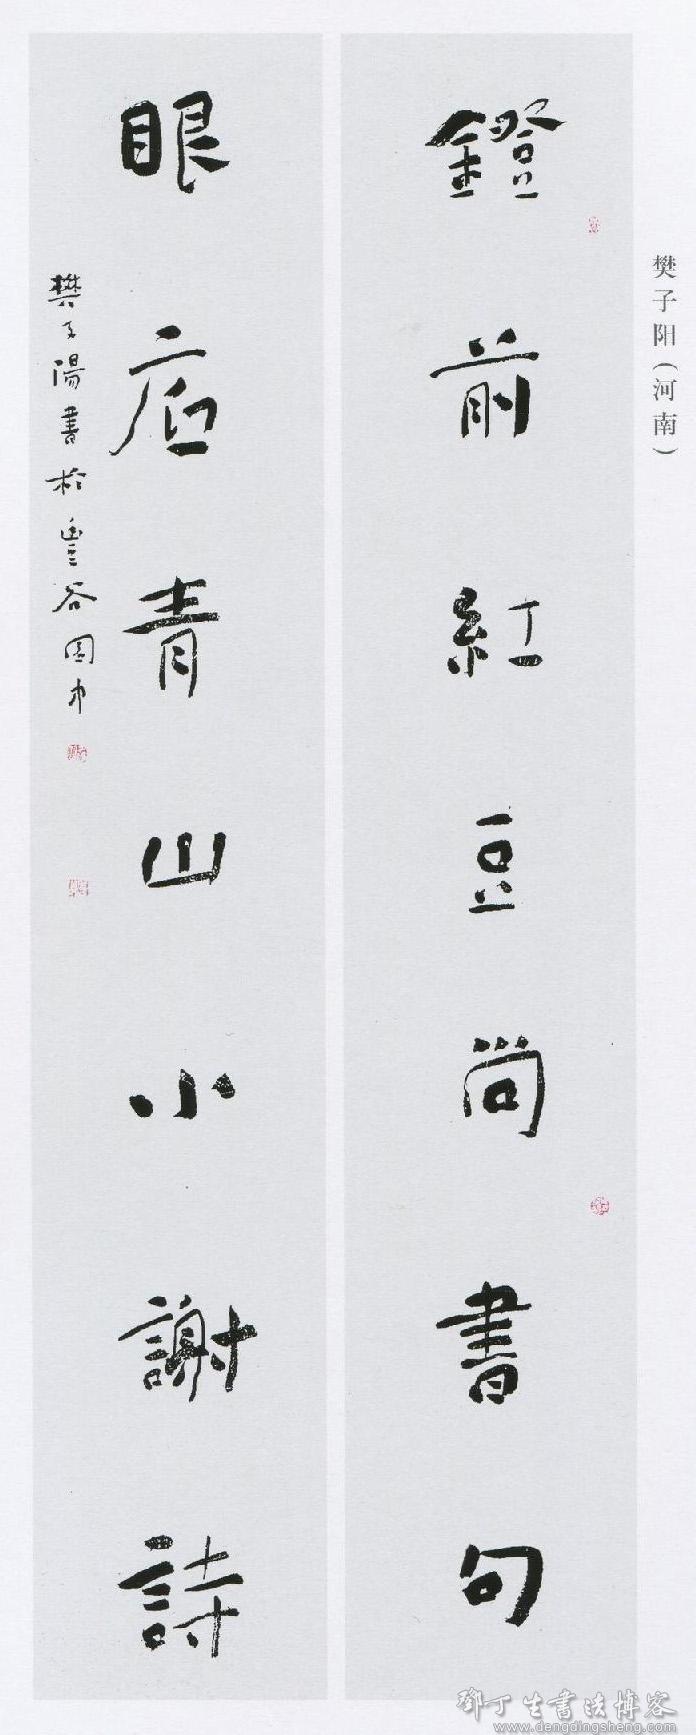 樊子阳(河南)
鐙前紅豆尚書句
眼底青山小謝詩
樊子陽書於豐谷園中
鄧丁生書法博客
www.dengdingsheng.com